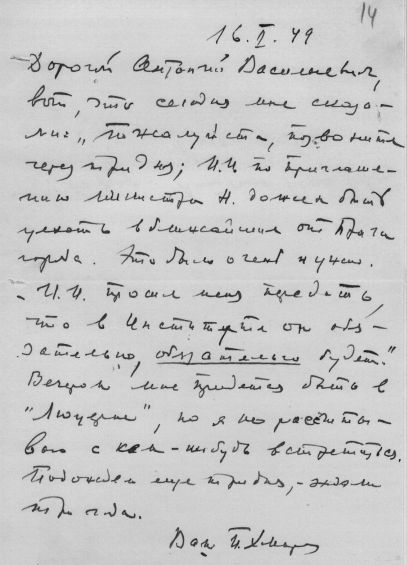 14
16.I.49
Дорогой Антоний Васильевич,
вот, что сегодня мне сказа-
ли: „Пожалуйста, позвоните
через три дня; И.И. по приглаше-
нию Министра Н. должен быть
уехать в ближайшие от Праги
города. Это было очень нужно.
- И.И. просил меня передать,
что в Институте он обя-
зательно, обязательно будет."
Вечером мне придется быть в
"Люцерне", но я не рассчиты-
ваю с кем-нибудь встретиться.
Подождем еще три дня, - ждали
три года.
Ваш